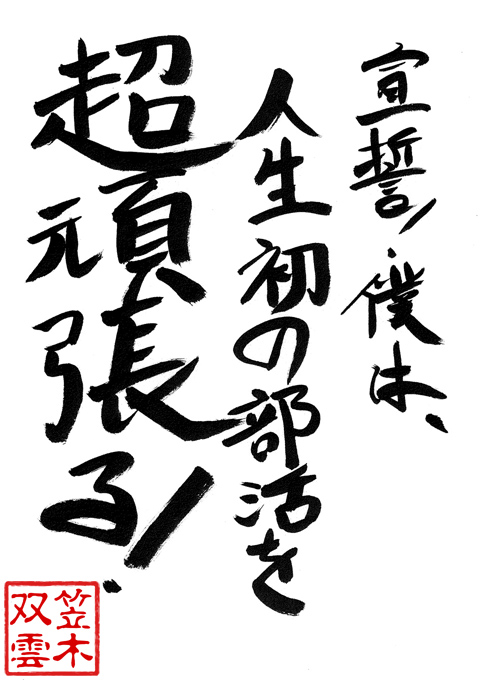 宣誓!僕は、
人生初の部活を
超頑張る!
笠木
双雲